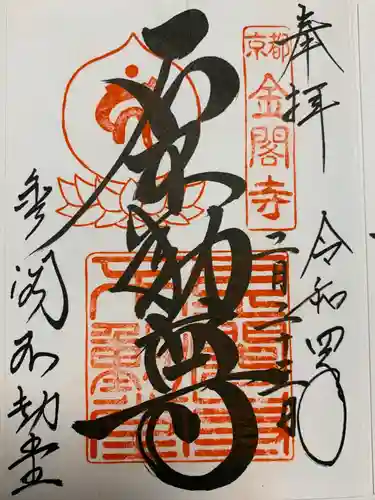 奉拝
令和四年
二月二十二日
京都
金閣寺
不動尊
金閣不動堂